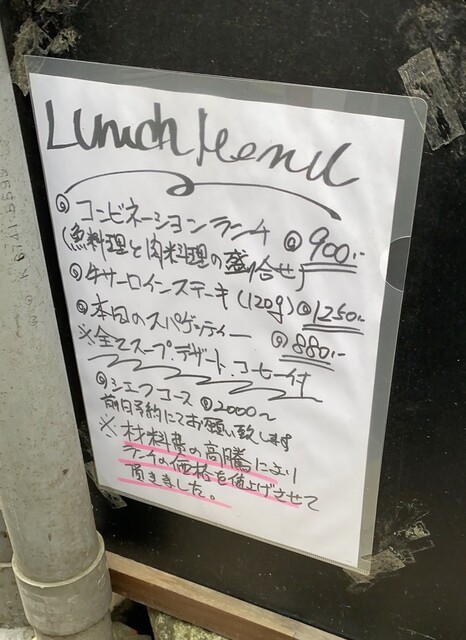 Lunch Menu
◎ コンビネーションランチ @ 900.-
(魚料理と肉料理の盛り合せ)
◎ 牛サーロインステーキ(120g) @ 1250.-
◎ 本日のスパゲッティー @ 880.-
※全てスープ、デザート、コーヒー付
◎ シェフコース @ 2000〜
前日予約にてお願い致します
※ 材料費の高騰により
ランチの価格を値上げさせて
頂きました。